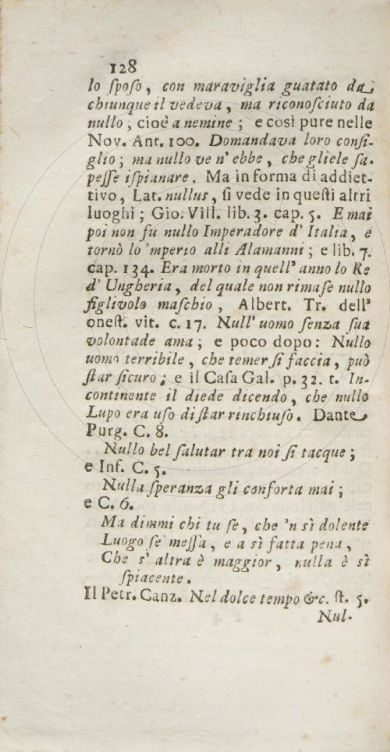 128
lo ſpoſo, con maraviglia guatato da
chiunque il vedeva, ma riconoſciuto da
nullo; cioè a nemine; e così pure nelle
Nov. Ant. 100. Domandava loro conſi-
glio; ma nullo ve n' ebbe, che gliele ſa-
peſſe iſpianare. Ma in forma di addiet-
tivo, Lat. nullus, ſi vede in queſti altri
luoghi; Gio. Vill. lib. 3. cap. 5. E mai
poi non fu nullo Imperadore d' Italia, e
tornò lo 'mperio alli Alamanni; e lib. 7.
cap. 134. Era morto in quell' anno lo Re
d' Ungheria, del quale non rimaſe nullo
figlivolo maſchio, Albert. Tr. dell'
oneſt. vit. c. 17. Null' uomo ſenza ſua
volontade ama; e poco dopo: Nullo
uomo terribile, che temer ſi faccia, può
ſtar ſicuro; e il Caſa Gal. p. 32. t. In-
continente il diede dicendo, che nullo
Lupo era uſo di ſtar rinchiuſo. Dante
Purg. C. 8.
Nullo bel ſalutar tra noi ſi tacque;
e Inf. C. 5.
Nulla ſperanza gli conforta mai;
e C. 6.
Ma dimmi chi tu ſe, che 'n sì dolente
Luogo ſe' meſſa, e a sì fatta pena,
Che s' altra è maggior, nulla è sì
ſpiacente.
Il Petr. Canz. Nel dolce tempo &c. ſt. 5.
Nul-